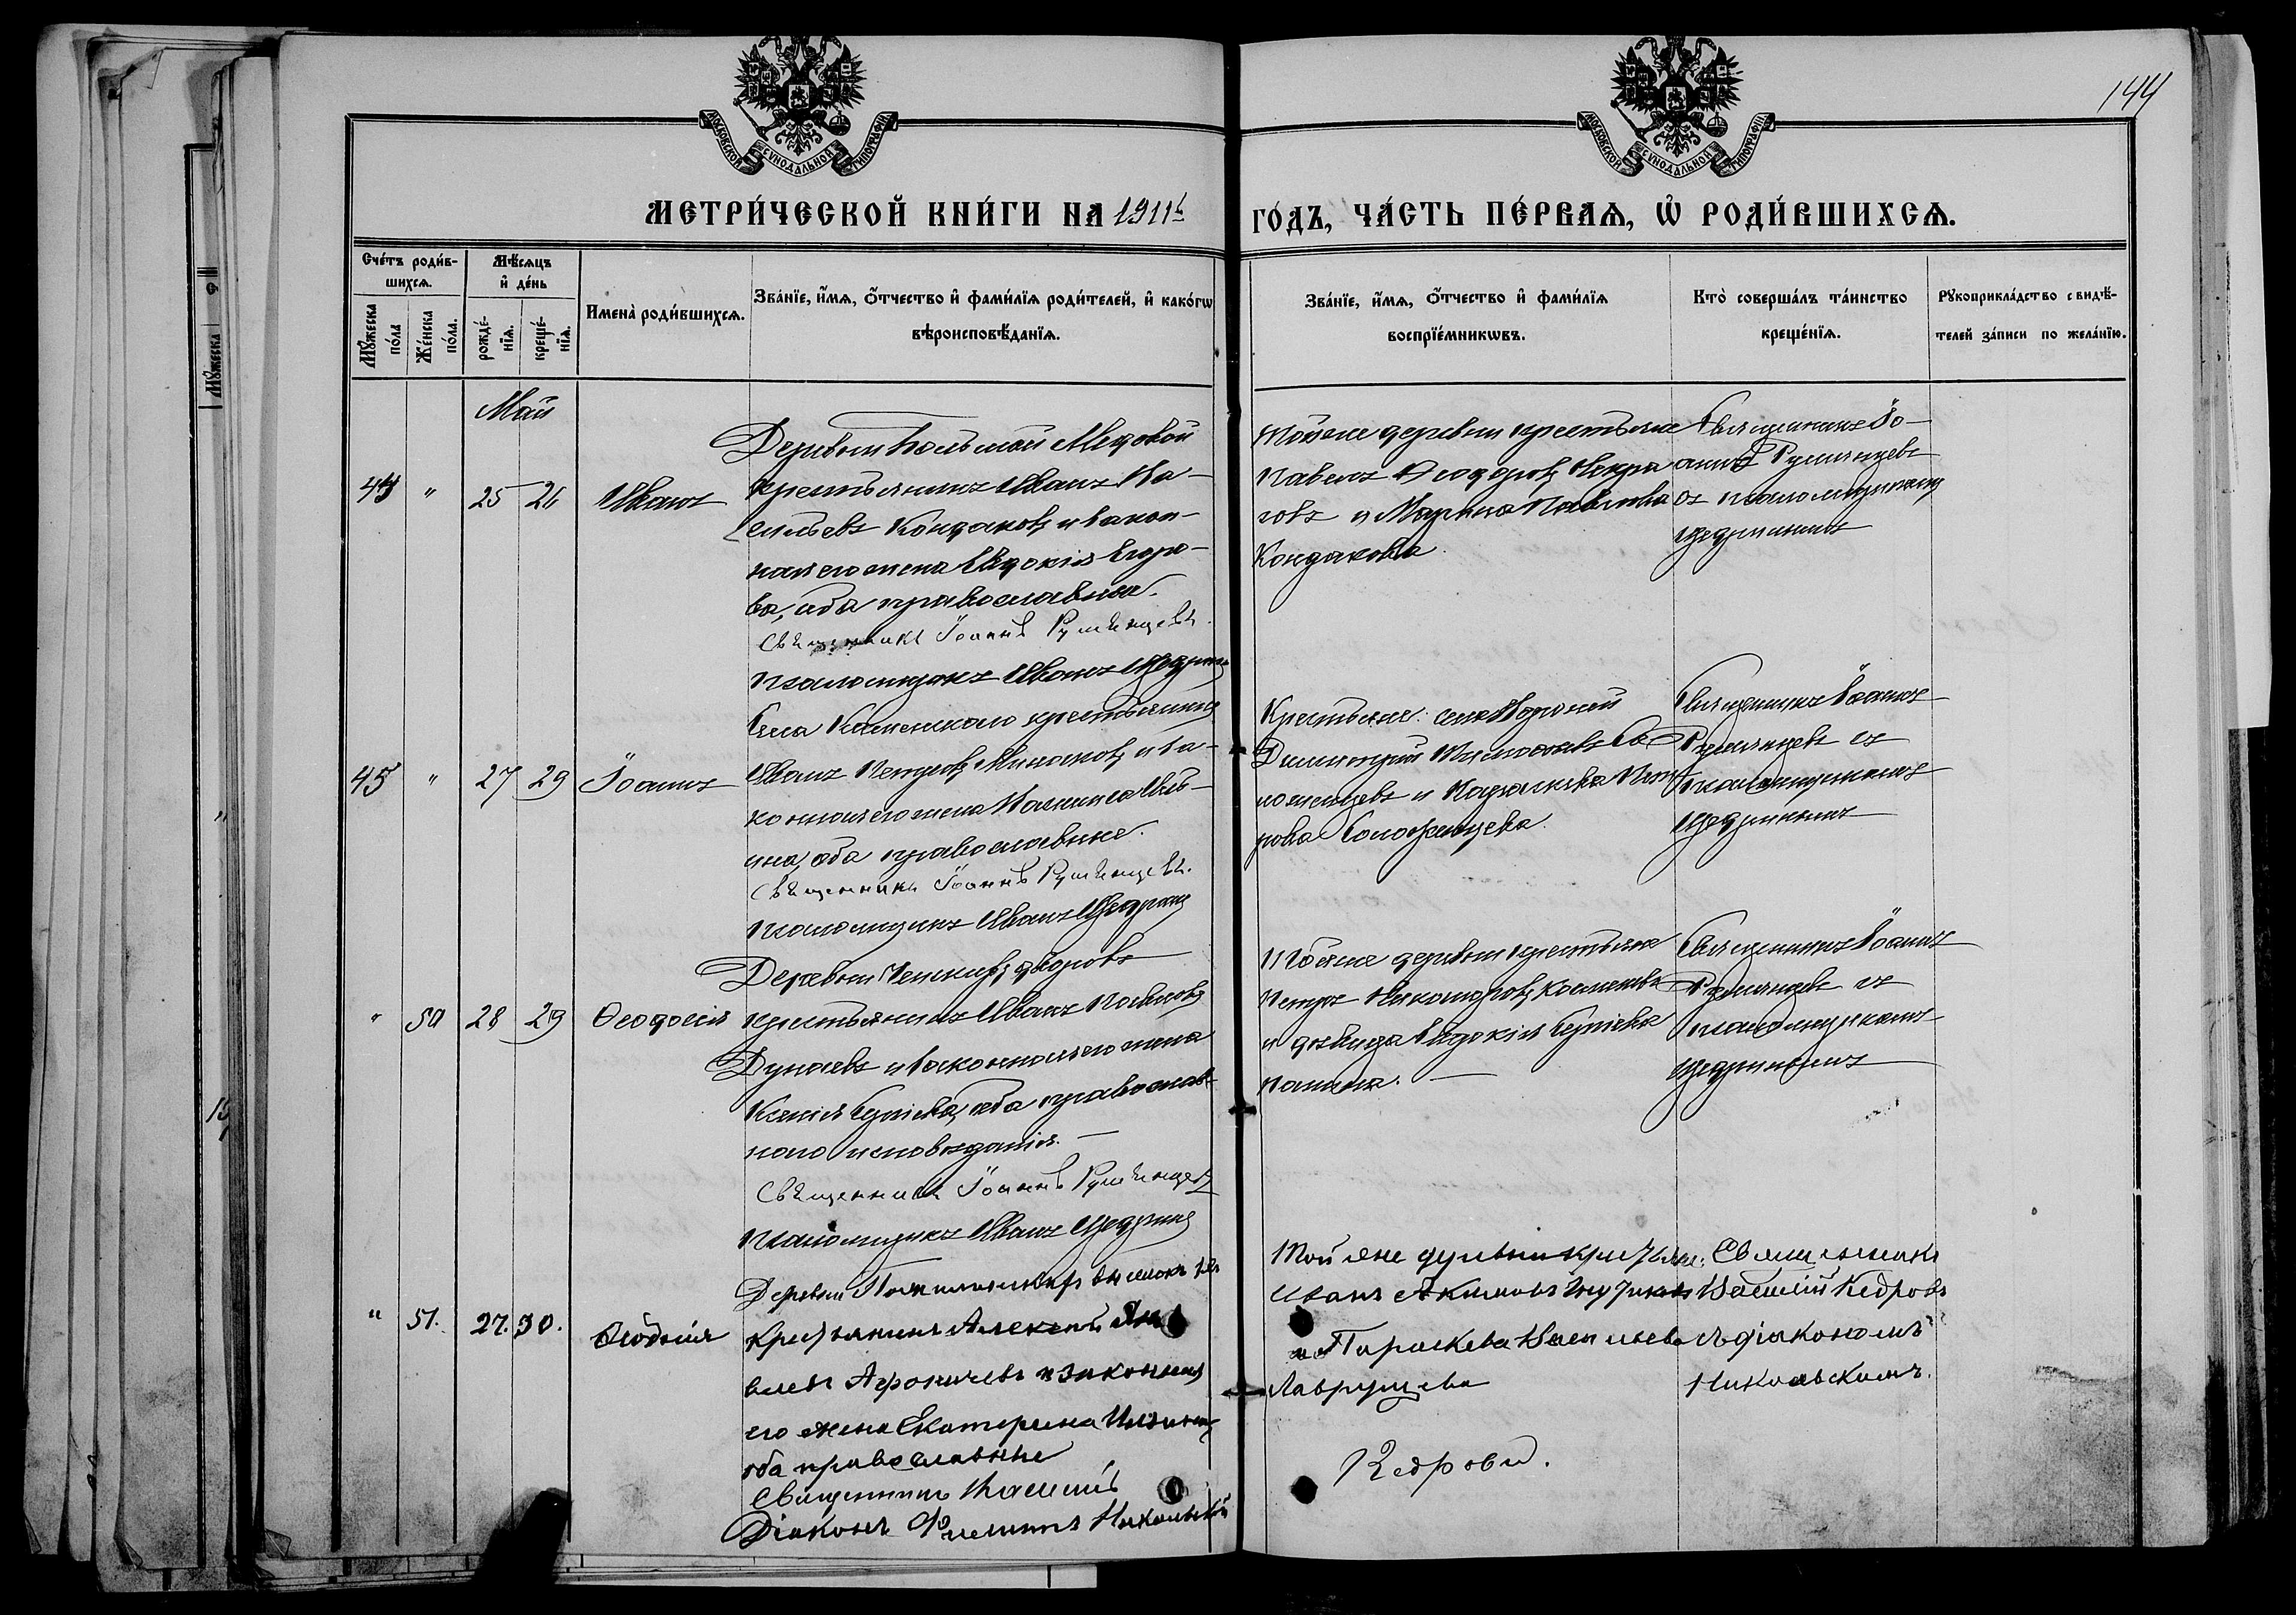 144
МОСКОВСКОЙ СѴНОДАЛЬНОЙ ТИПОГРАФІИ
МОСКОВСКОЙ СѴНОДАЛЬНОЙ ТИПОГРАФІИ
МЕТРИ́ЧЕСКОЙ КНИ́ГИ НА 1911й
ГО́ДЪ, ЧА́СТЬ ПЕ́РВАѦ, Ѡ҆ РОДИ́ВШИХСѦ.
Сче́тъ роди́в-
шихсѧ.
Мꙋ́жеска по́ла
Же́нска по́ла.
Мѣ́сѧцъ
и҆ де́нь
рожде́-нїѧ.
креще́-нїѧ.
Имена̀ роди́вшихсѧ.
Зва́нїе, и҆́мѧ, ѻ҆́тчество и҆ фами́лїѧ роди́телей, и҆ како́гѡ
вѣроисповѣ́данїѧ.
Зва́нїе, и҆́мѧ, ѻ҆́тчество и҆ фами́лїѧ
воспрїе́мникѡвъ.
Кто̀ соверша́лъ та́инство
креще́нїѧ.
Рꙋкоприкла́дство свидѣ́-
телей за́писи по жела́нїю.
Май
44 " 25 26 Иванъ
Деревни Большой Медовой
крестьянинъ Иванъ Ва-
сильевъ Кондаковъ и закон-
ная его жена Евдокія Егоро-
ва, оба православные.
Священникъ Іоаннъ Румянцевъ.
Псаломщикъ Иванъ Щедринъ
Тойже деревни крестьяне
Павелъ Ѳеодоровъ Некра
совъ и Марина Павлова
Кондакова.
Священникъ Іо-
аннъ Румянцевъ
съ псаломщикомъ
Щедринымъ
45 " 27 29 Іоаннъ
Села Каменскаго крестьянинъ
Иванъ Петровъ и за-
конная его жена
ина, оба православные.
Священникъ Іоаннъ Румянцевъ.
Псаломщикъ Иванъ Щедринъ
Крестьяне:
Димитрій
и Параскева Пет
рова Соложенцева.
Священникъ Іоаннъ
Румянцевъ съ
псаломщикомъ
Щедринымъ
" 50 28 29 Ѳеодосія
Деревни дворовъ
крестьянинъ Иванъ
Дунаевъ и законная его жена
Ксенія Сергіева, оба православ-
наго исповѣданія. —
Священникъ Іоаннъ Румянцевъ
Псаломщикъ Иванъ Щедринъ
Тойже деревни крестьяне
Петръ Никаноровъ
и дѣвица Евдокія Сергіева
Панина. —
Священникъ Іоаннъ
Румянцевъ съ
псаломщикомъ
Щедринымъ
" 51. 27. 30. Ѳеодосія
Деревни
крестьянинъ Алексѣй
влевъ и законная
его жена Екатерина
оба православные
Священникъ Василій
Діаконъ Филиппъ Никольскій
Той же деревни крестьяне:
Иванъ Акимовъ
и Параскева Васильева
Лаврущева
Кедровъ.
Священникъ
Василій Кедровъ
съ діакономъ
Никольскимъ.